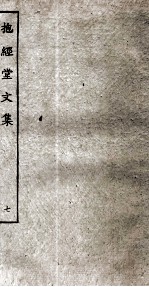 抱經堂文集
七